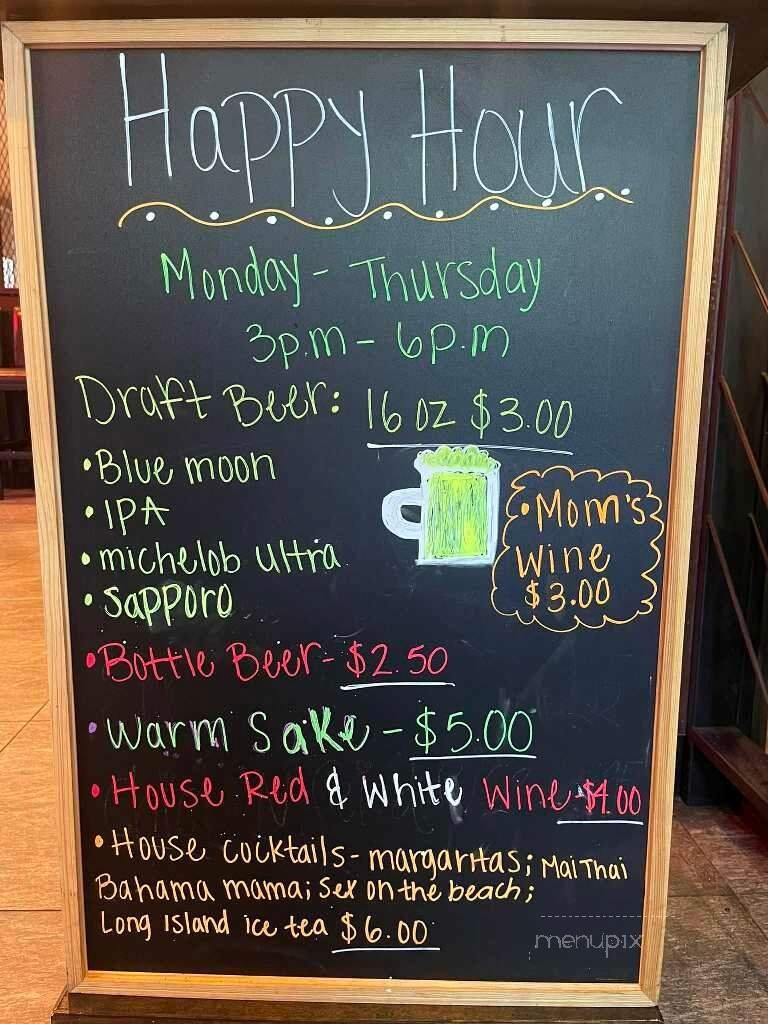 Happy Hour
Monday - Thursday
3p.m - 6p.m
Draft Beer: 16 oz $3.00
•Blue moon
•IPA
•michelob Ultra
•Sapporo
•Mom's
Wine
$3.00
•Bottle Beer- $2.50
•Warm Sake - $5.00
•House Red & White Wine-$4.00
•House cocktails- margaritas; Mai Thai
Bahama mama; Sex on the beach;
Long Island ice tea $6.00
menupix